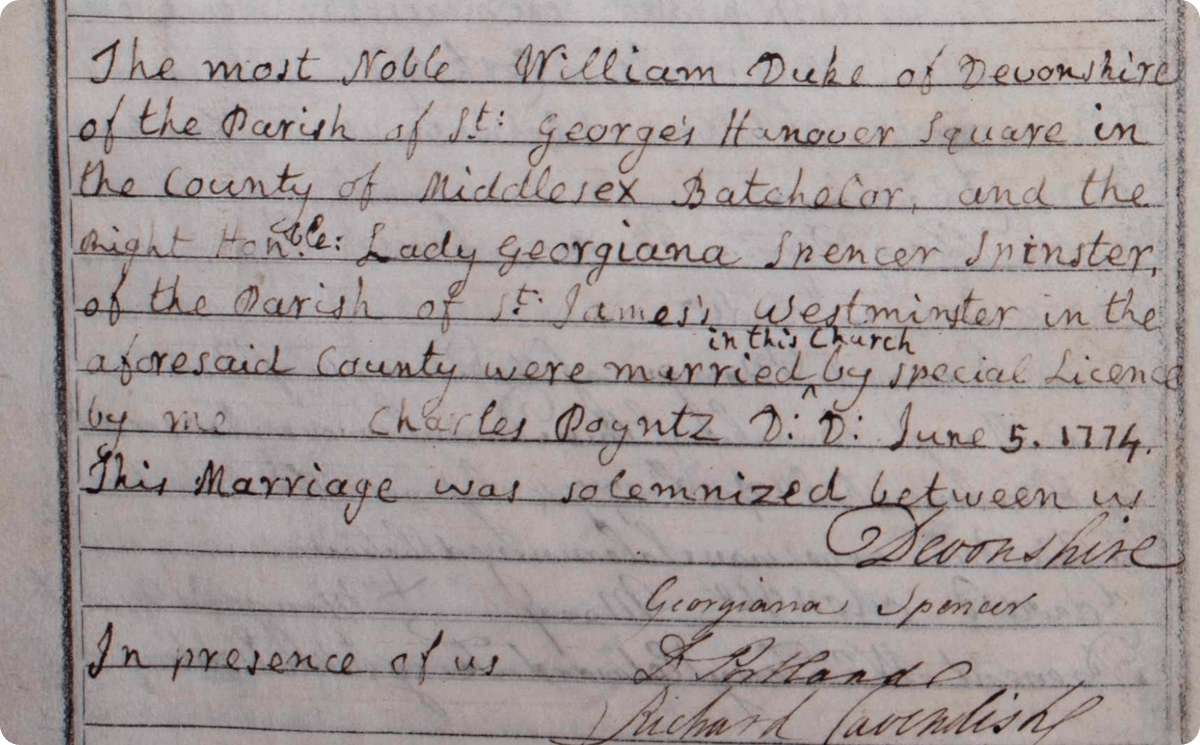 The most Noble William Duke of Devonshire
of the Parish of St: George's Hanover Square in
the County of Middlesex Batchelor, and the
Right Honble: Lady Georgiana Spencer Spinster,
of the Parish of St: James's Westminster in the
in this Church
aforesaid County were married ^ by special Licence
by me Charles Poyntz D: D: June 5. 1774.
This Marriage was solemnized between us
Devonshire
Georgiana Spencer
In presence of us D Portland
Richard Cavendish